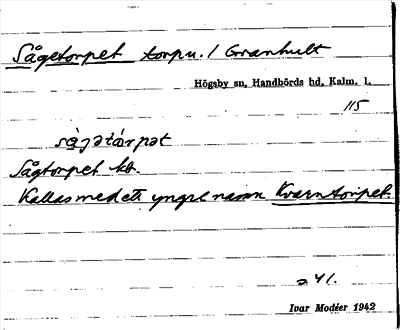 Sågetorpet torpu. / Granhult
Högsby sn, Handbörds hd, Kalm. l.
115
sàjətárpət
Sågtorpet kb.
Kallas med ett yngre namn Kvarntorpet.
a 41.
Ivar Modéer 1942